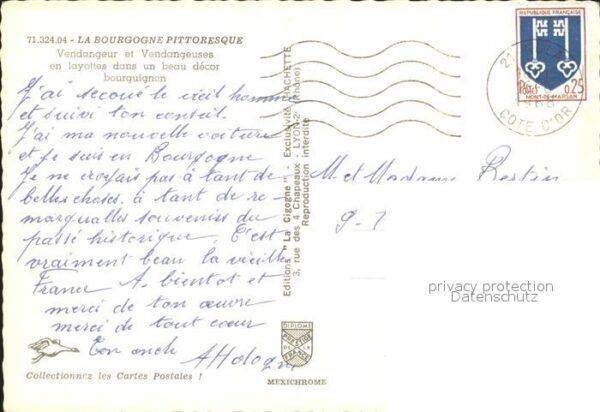 71.324.04 - LA BOURGOGNE PITTORESQUE
Vendangeur et Vendangeuses
en layottes dans un beau décor
bourguignon
J'ai secoué le vieil homme
et suivi ton conseil.
J'ai ma nouvelle voiture
et je suis en Bourgogne
Je ne croyais pas à tant de
belles choses. à tant de re-
marquables souvenirs du
passé historique. C'est
vraiment beau la vieille
France A. bientot et
merci de ton œuvre
merci de tout cœur
Ton oncle
Collectionnez les Cartes Postales !
Editions "La Cigogne" - Exclusivité HACHETTE
3, rue des 4 Chapeaux - LYON-2e (Rhône)
Reproduction interdite
DIPLOME
PRESTIGE
DE LA
FRANCE
MEXICHROME
REPUBLIQUE FRANÇAISE
Postes 0,25
MONT-DE-MARSAN
21
COTE D'OR
M et Madame
9-
privacy protection
Datenschutz